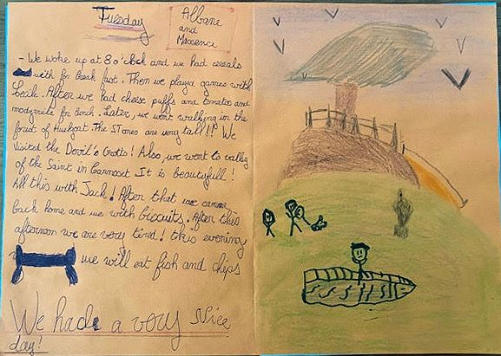 Tuesday
Albane
and
Maxence
- We woke up at 8 o'clock and we had cereals
with for breakfast. Then we played games with
Jack. After we had cheese puffs and tomato and
for lunch. Later, we went walking in the
forest of Huelgoat. The STones are very tall!! We
visited the Devil's Grotto! Also, we went to valley
of the Saint in Carnoët It is beautyfull!
All this with Jack! After that we came
back home and we with biscuits. After this
afternoon we are very tired! this evening
we will eat fish and chips
We had a very nice
day!